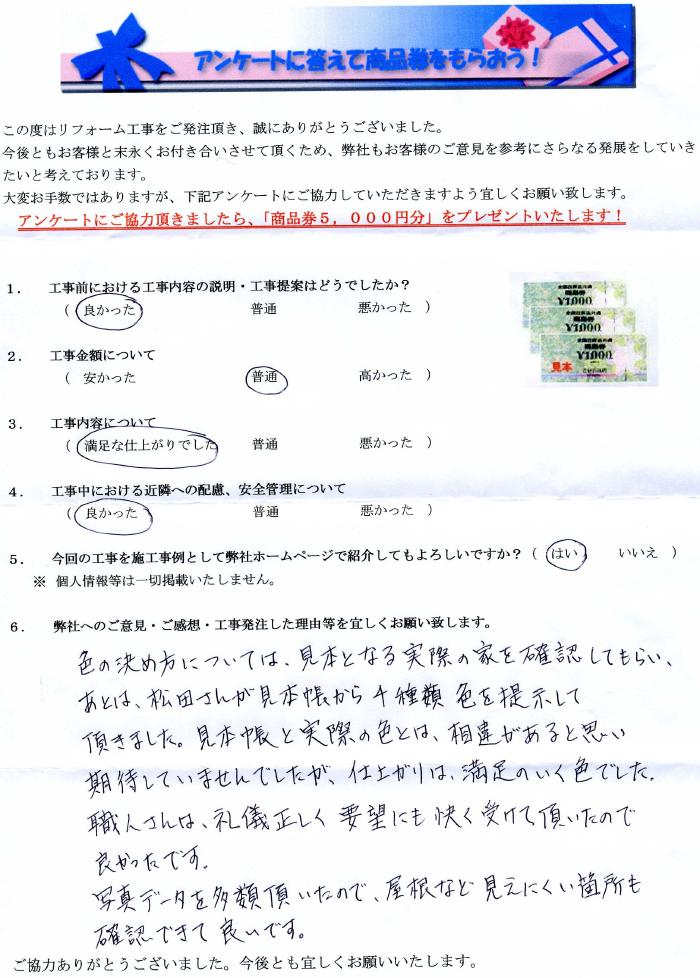 アンケートに答えて商品券をもらおう！
この度はリフォーム工事をご発注頂き、誠にありがとうございました。
今後ともお客様と末永くお付き合いさせて頂くため、弊社もお客様のご意見を参考にさらなる発展をしていき
たいと考えております。
大変お手数ではありますが、下記アンケートにご協力していただきますよう宜しくお願い致します。
アンケートにご協力頂きましたら、「商品券５，０００円分」をプレゼントいたします！
１．　工事前における工事内容の説明・工事提案はどうでしたか？
（　良かった　普通　悪かった　）
¥1,000
¥1,000
¥1,000
見本
２．　工事金額について
（　安かった　普通　高かった　）
３．　工事内容について
（　満足な仕上がりでした　普通　悪かった　）
４．　工事中における近隣への配慮、安全管理について
（　良かった　普通　悪かった　）
５．　今回の工事を施工事例として弊社ホームページで紹介してもよろしいですか？（　はい　いいえ　）
※ 個人情報等は一切掲載いたしません。
６．　弊社へのご意見・ご感想・工事発注した理由等を宜しくお願い致します。
色の決め方については、見本となる実際の家を確認してもらい、
あとは、松田さんが見本帳から千種類 色を提示して
頂きました。見本帳と実際の色とは、相違があると思い
期待していませんでしたが、仕上がりは、満足のいく色でした。
職人さんは、礼儀正しく 要望にも 快く受けて頂いたので
良かったです。
写真データを多類頂いたので、屋根など見えにくい箇所も
確認できて 良いです。
ご協力ありがとうございました。今後とも宜しくお願いいたします。